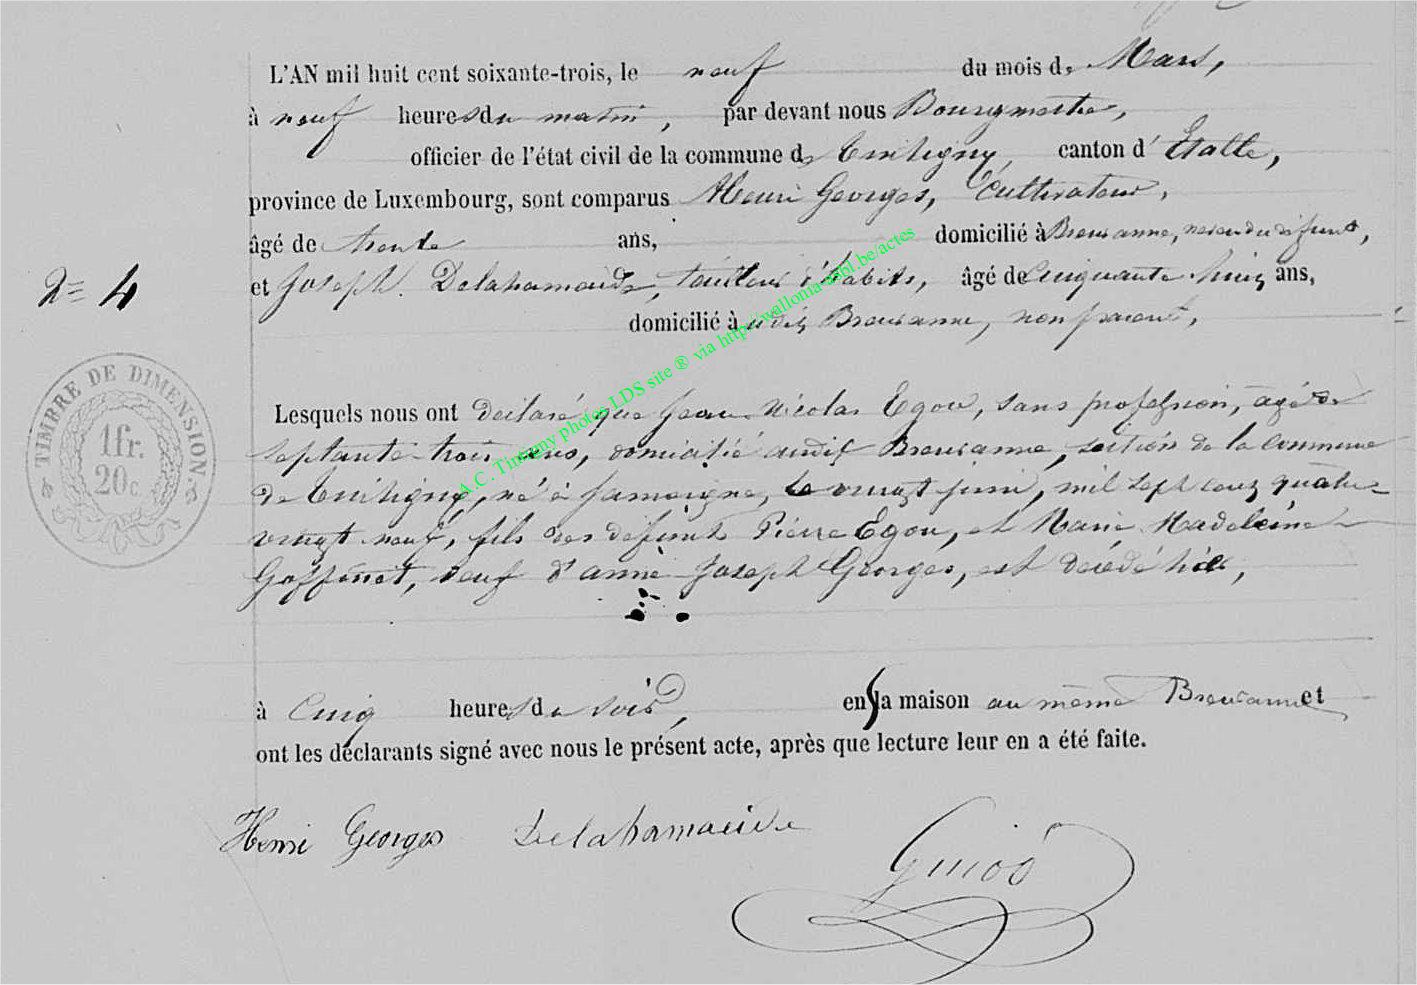 L'AN mil huit cent soixante-trois, le neuf du mois de Mars,
à neuf heures du matin, par devant nous Bourgmestre,
officier de l'état civil de la commune de Tintigny, canton d'Etalle,
province de Luxembourg, sont comparus Henri Georges, Cultivateur,
âgé de trente ans, domicilié à Breuvanne, neveu du défunt,
et Joseph Delahamaide, tailleur d'habits, âgé de Cinquante huit ans,
2e 4
domicilié à udit Breuvanne, non parent,
Lesquels nous ont déclaré que Jean Nicolas Egou, sans profession, agé de
septante trois ans, domicilié audit Breuvanne, section de la commune
de Tintigny, né à Jamoigne, le vingt juin, mil sept cent quatre
vingt neuf, fils des défunts Pierre Egou, et Marie Madeleine
Goffinet, veuf d'anne Joseph Georges, est décédé hier,
à Cinq heures du soir, en la maison au même Breuvanne et
ont les déclarants signé avec nous le présent acte, après que lecture leur en a été faite.
Henri Georges Delahamaide
TIMBRE DE DIMENSION.
1fr.
20c.
A.C. Tintigny photos LDS site ® via http://wallonia-bbl.be/actes